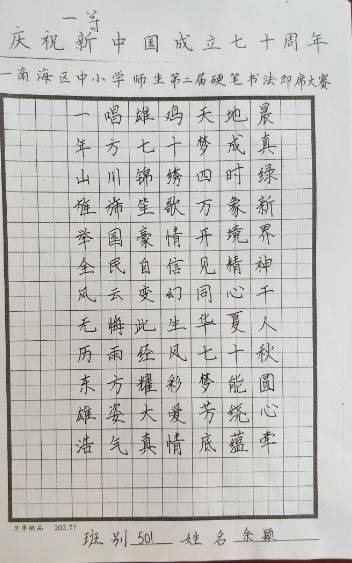 一等
庆祝新中国成立七十周年
一南海区中小学师生第二届硬笔书法即席大赛
一唱雄鸡天地晨
年方七十梦成真
山川锦绣四时绿
旌旆笙歌万象新
举国豪情开境界
全民自信见精神
风云变幻同心干
无悔此生华夏人
历雨经风七十秋
东方耀彩梦能圆
雄姿大爱芳绕心
浩气真情底蕴牵
202.77
班别 501 姓名 余颖